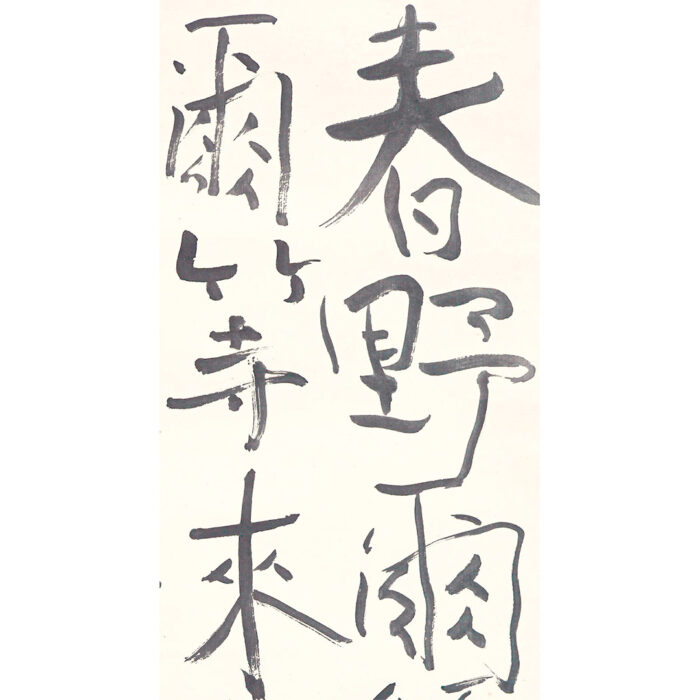 春野爾
爾等來